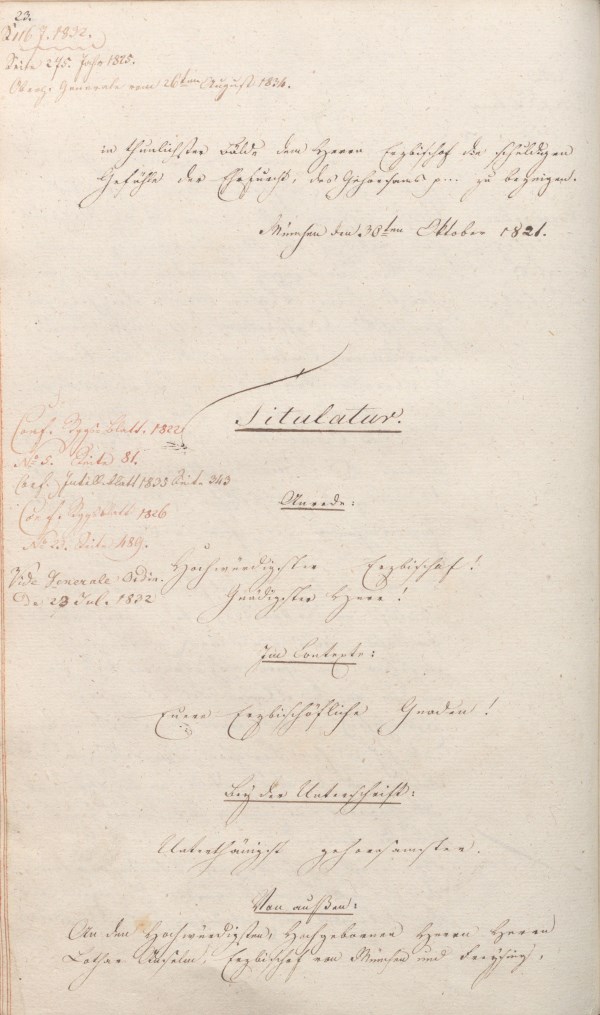 23.
S. 116. J. 1832.
Seite 275. Jahr 1825.
Oberh. Generale vom 26ten August 1834.
in thunlichster Bälde dem Herrn Erzbischof die schuldigen
Gefühle der Ehrfurcht, des Gehorsams p.. zu bezeigen.
München den 30ten Oktober 1821.
Titulatur.
Conf. Rggs. Blatt. 1822
No 5. Seite 81.
Conf. Intell. blatt 1833 Seite 343
Anrede:
Conf. Rggsblatt 1826
No 25. Seite 489.
Hochwürdigster Erzbischof!
Vide Generale Ordin.
Gnädigster Herr!
de 23 Jul. 1832
Im Contexte:
Euere Erzbischöfliche Gnaden!
Bey der Unterschrift:
Unterthänigst gehorsamster.
Von außen:
An den Hochwürdigsten, Hochgebornen Herrn Herrn
Lothar Anselm, Erzbischof von München und Freysing,